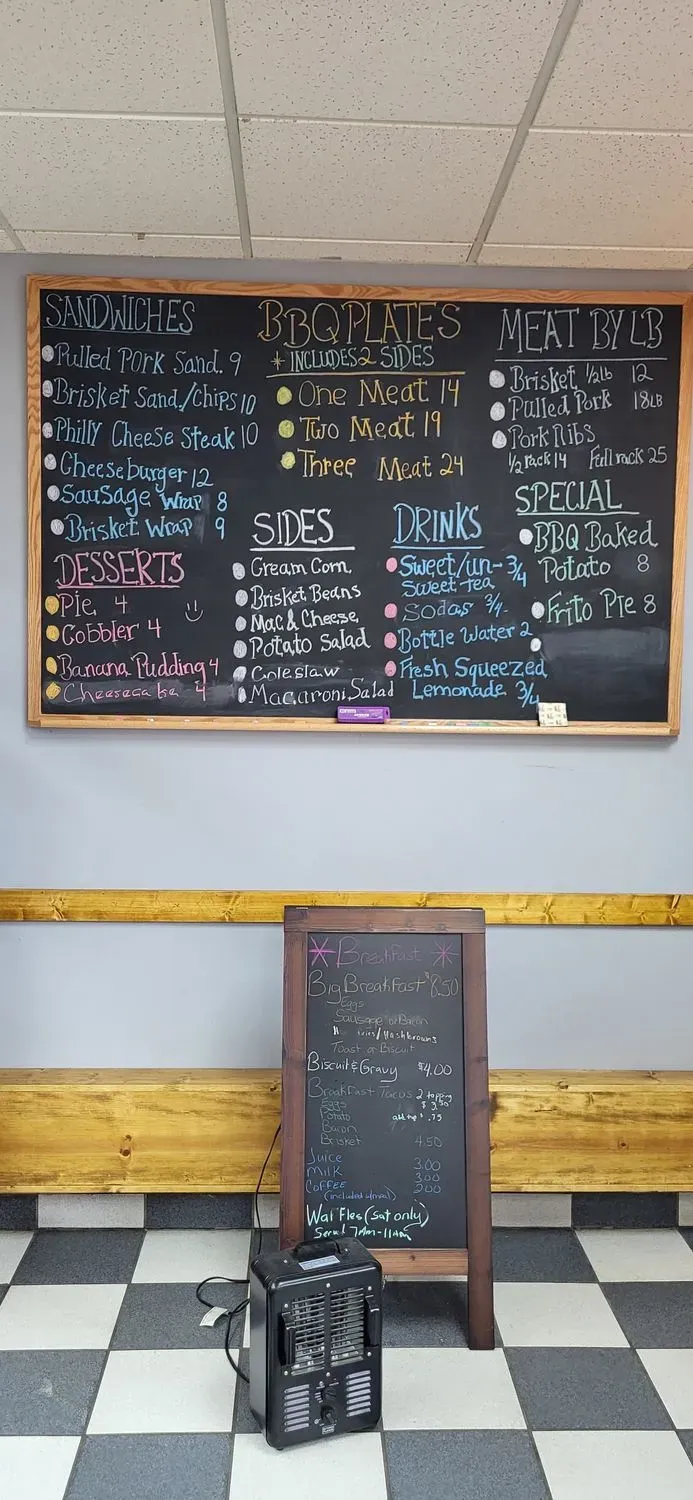 SANDWICHES
Pulled Pork Sand. 9
Brisket Sand./Chips 10
Philly Cheese Steak 10
Cheeseburger 12
Sausage Wrap 8
Brisket Wrap 9
DESSERTS
Pie 4
Cobbler 4
Banana Pudding 4
Cheesecake 4
BBQ PLATES
* INCLUDES 2 SIDES
One Meat 14
Two Meat 19
Three Meat 24
SIDES
Cream Corn
Brisket Beans
Mac & Cheese
Potato Salad
Coleslaw
Macaroni Salad
DRINKS
Sweet/un- 3/4
Sweet tea
Sodas 3/4
Bottle Water 2
Fresh Squeezed
Lemonade 3/4
MEAT BY LB
Brisket 1/2lb 12
Pulled Pork 18LB
Pork Ribs
1/2 rack 14 Full rack 25
SPECIAL
BBQ Baked
Potato 8
Frito Pie 8
* Breakfast *
Big Breakfast $8.50
Eggs
Sausage or Bacon
fries/Hashbrowns
Toast or Biscuit
Biscuit & Gravy $4.00
Breakfast Tacos 2 topping
Eggs $3.50
Potato add top $.75
Bacon
Brisket 4.50
Juice 3.00
Milk 3.00
Coffee 2.00
(included w/meal)
Waffles (Sat only)
7AM-11AM